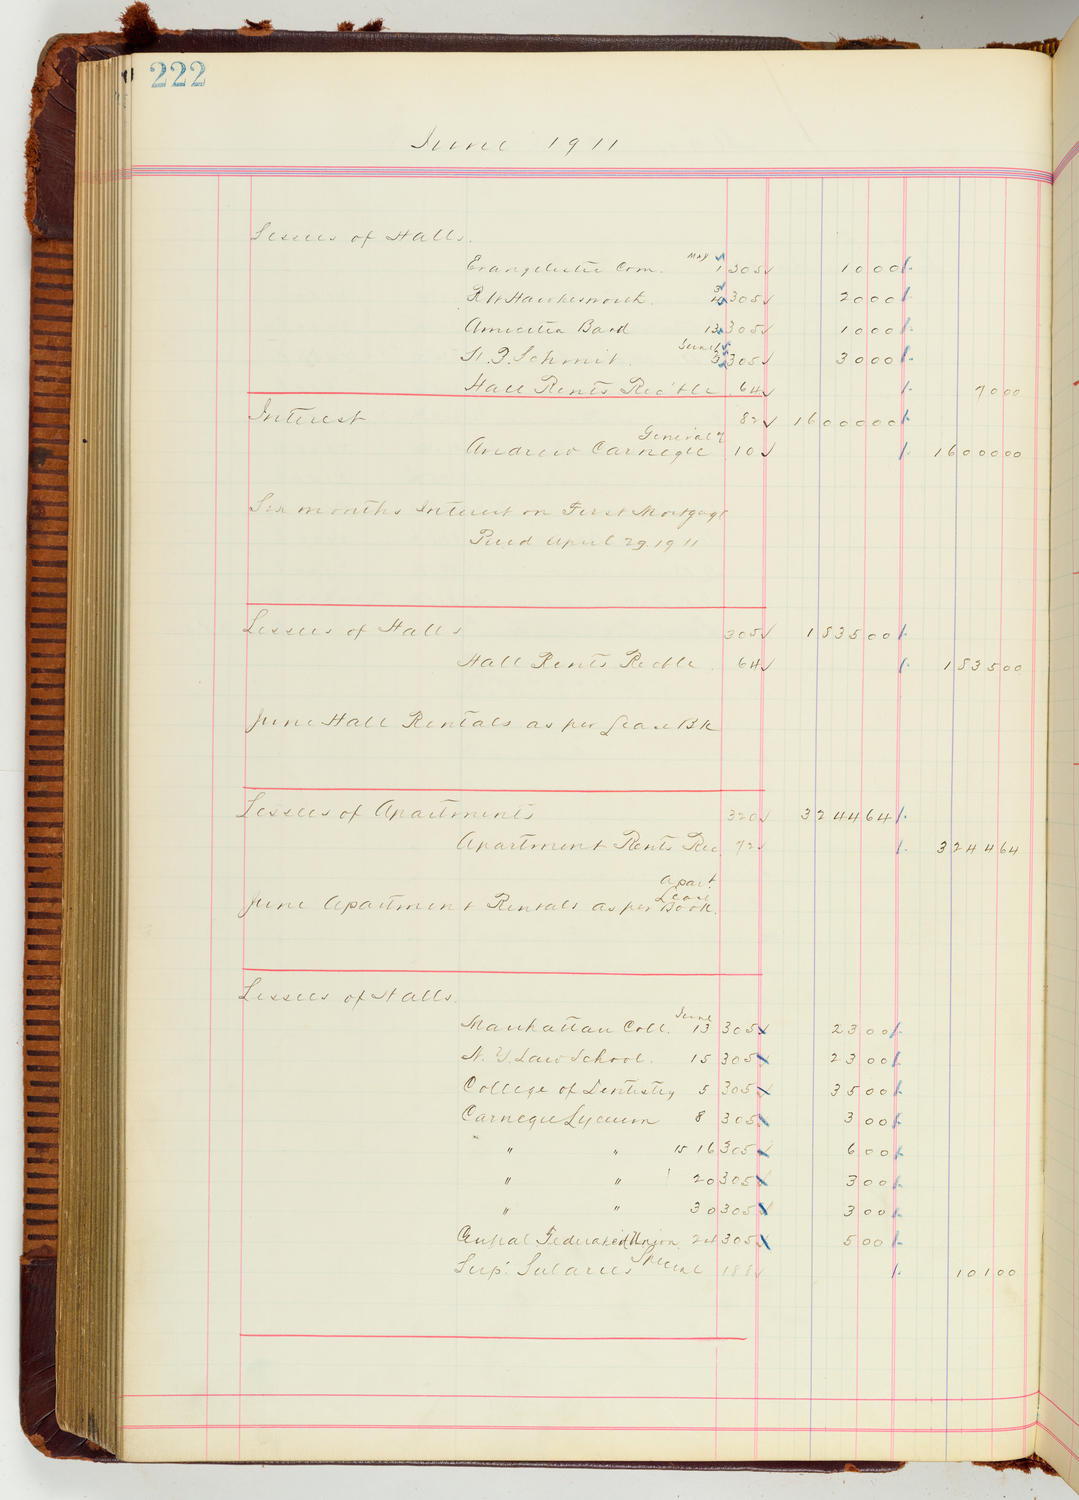 222
June 1911
Lessees of Halls.
Evangelistic Com. May 1 305 ✓ 10 00
R W Hawkesworth. 305 ✓ 20 00
Amicitia Band 13 305 ✓ 10 00
Schmit. June 305 ✓ 30 00
Hall Rents Rec'ble 64 ✓ 70 00
Interest 82 ✓ 16000 00
Andrew Carnegie General 10 ✓ 16000 00
Six months Interest on First Mortgage
Paid April 29. 1911
Lessees of Halls 305 ✓ 1535 00
Hall Rents Recble. 64 ✓ 1535 00
June Hall Rentals as per Lease Bk
Lessees of Apartments 320 ✓ 3244 64
Apartment Rents Rec 72 ✓ 3244 64
June Apartment Rentals as per Apart. Lease Book.
Lessees of Halls.
Manhattan Coll. June 13 305 ✓ 23 00
N. Y. Law School. 15 305 ✓ 23 00
College of Dentistry 5 305 ✓ 35 00
Carnegie Lyceum 8 305 ✓ 3 00
" " 15 16 305 ✓ 6 00
" " 20 305 ✓ 3 00
" " 30 305 ✓ 3 00
Central Federated Union. 24 305 ✓ 5 00
Sup'. Salaries Special 188 ✓ 101 00